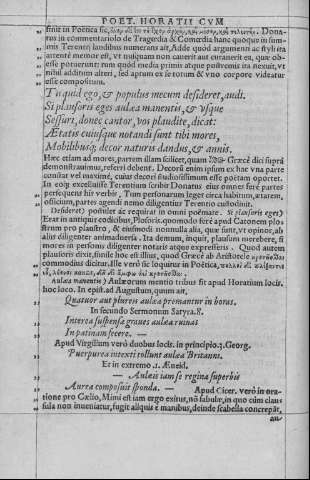 POET. HORATII CVM
finit in Poëtica sic,
rus in commentariolo de Tragœdia & Comœdia hanc quoque in summis
Terentij laudibus numerans ait, Adde quòd argumenti ac styli ita
attentè memor est, vt nusquam non cauerit aut curauerit ea, quæ obesse
poterunt: tum quòd media primis atque postremis ita nexuit, vt
nihil additum alteri, sed aptum ex se totum & vno corpore videatur
esse compositum.
Tu quid ego, & populus mecum desideret, audi.
Si plausoris eges aulæa manentis, & vsque
Sessuri, donec cantor, vos plaudite, dicat:
Ætatis cuiusque notandi sunt tibi mores,
Mobilibusq; decor naturis dandus, & annis.
Hæc etiam ad mores, partem illam scilicet, quam Græcè dici suprà
demonstrauimus, referri debent. Decorū enim ipsum ex hac vna parte
constat vel maximè, cuius decori studiosissimum esse poëtam oportet.
In eoq; excelluisse Terentium scribit Donatus eius omnes ferè partes
persequens his verbis, Tum personarum lege circa habitum, ætatem,
officium, partes agendi nemo diligentius Terentio custodiuit.
Desideret) postulet ac requirat in omni poëmate. Si plausoris eges)
Erat in antiquis codicibus, Plosoris, quomodo ferè apud Catonem plostrum
pro plaustro, & eiusmodi nonnulla alia, quæ sunt, vt opinor, ab
alijs diligenter animaduersa. Ita demum, inquit, plausum merebere, si
mores in personis diligenter notaris atque expresseris. Quod autem
plausoris dixit, finisse hoc est illius, quod Græcè ab Aristotele
commodius dicitur. Ille verò sic loquitur in Poëtica,
Aulæa manentis) Aulæorum mentio tribus fit apud Horatium locis.
hoc loco. In epist. ad Augustum, quum ait,
Quatuor aut plureis aulæa premantur in horas.
In secundo Sermonum Satyra. 8.
Interea suspensa graues aulæa ruinas
In patinam fecere. —
Apud Virgilium verò duobus locis. in principio. 3. Georg.
Purpurea intexti tollant aulæa Britanni.
Et in extremo. 1. Æneid.
— Aulæis iam se regina superbis
Aurea composuit sponda. — Apud Cicer. verò in oratione
pro Cælio, Mimi est iam ergo exitus, nō fabulæ, in quo cùm clausula
non inueniatur, fugit aliquis è manibus, deinde scabella concrepāt,